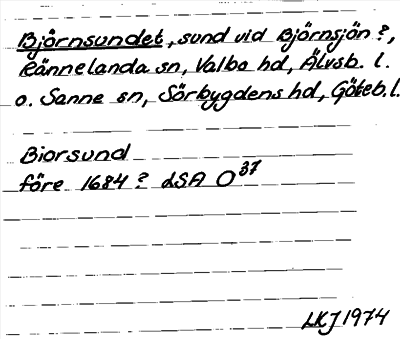 Björnsundet, sund vid Björnsjön?,
Rännelanda sn, Valbo hd, Älvsb. l.
o. Sanne sn, Sörbygdens hd, Göteb. l.
Biorsund
före 1684? LSA O37
LKJ 1974